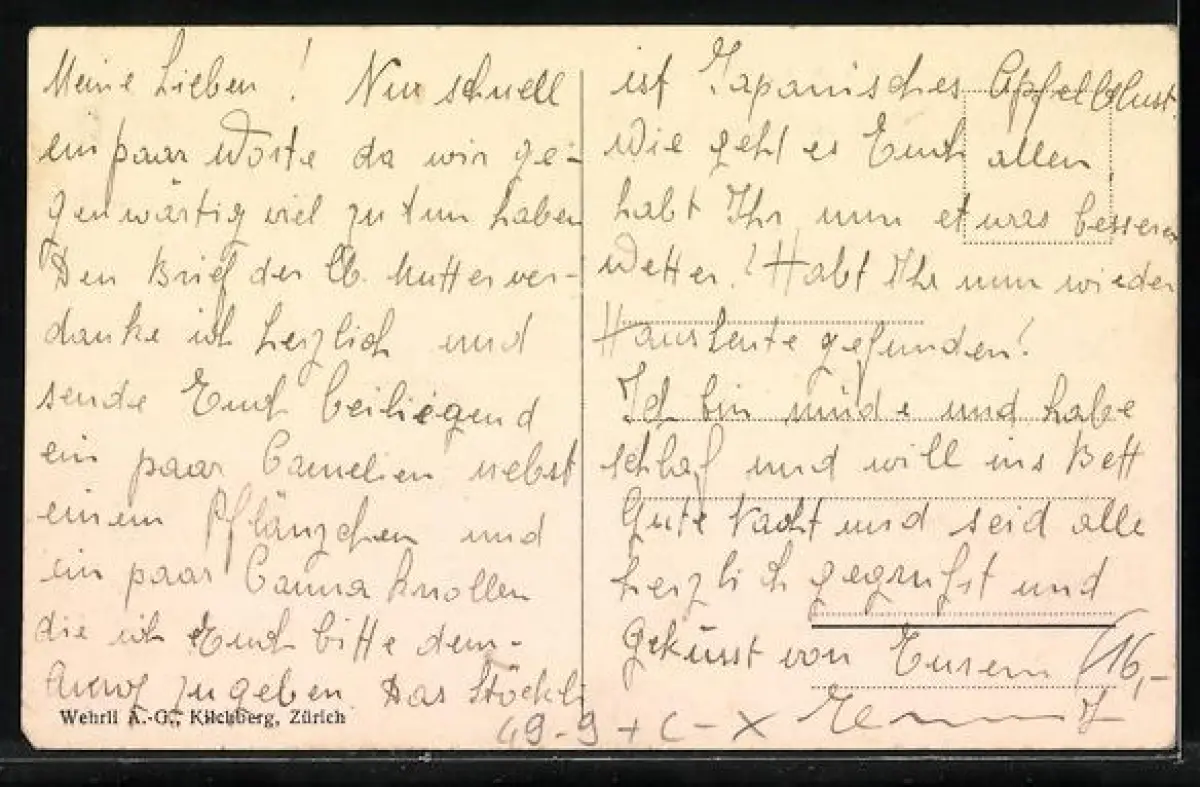 Meine Lieben! Nur schnell
ein paar Worte da wir ge-
genwärtig viel zu tun haben
Den Brief der lb. Mutter ver-
danke ich herzlich und
sende Euch beiliegend
ein paar Camelien nebst
einem Pflänzchen und
ein paar Canna Knollen
die ich Euch bitte dem
zu geben. Das Stöckli
Wehrli A.-G., Kilchberg, Zürich
ist Japanisches Apfelblust.
Wie geht es Euch allen,
habt Ihr nun etwas besseres
Wetter! Habt Ihr nun wieder
Hausleute gefunden!
Ich bin müde und habe
schlaf und will ins Bett
Gute Nacht und seid alle
herzlich gegrüsst und
geküsst von Eurem
16,-
49-9 + C - X